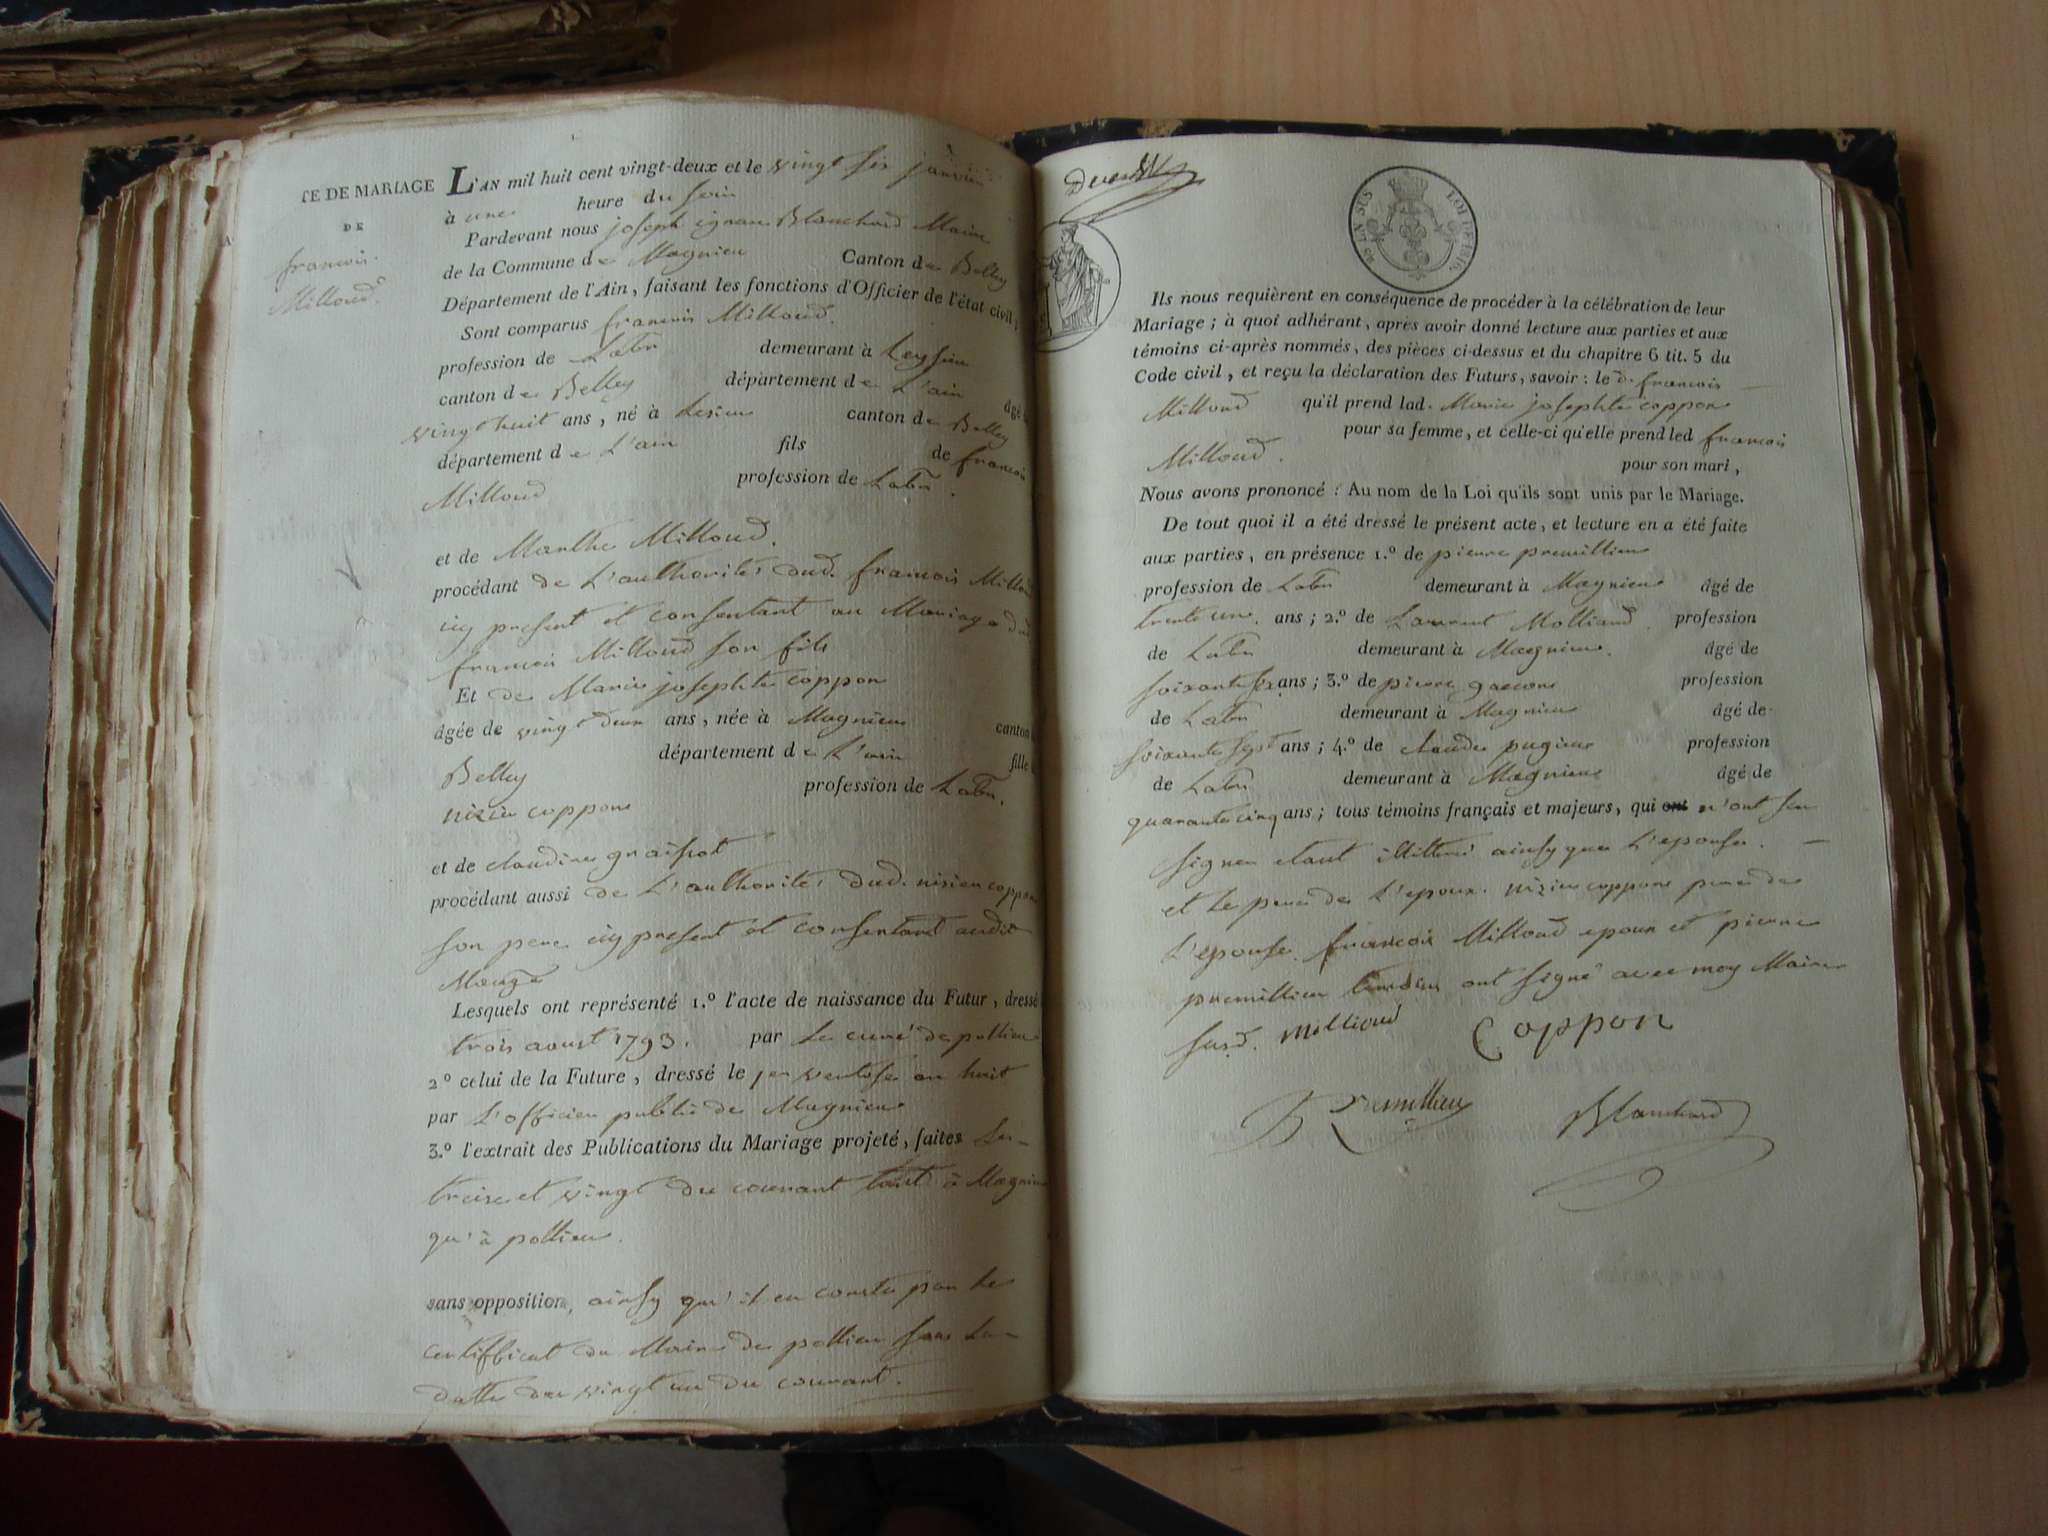 TE DE MARIAGE
DE
francois
Millioud
L'AN mil huit cent vingt-deux et le vingt six janvier
à une heure du soir
Pardevant nous joseph ignace Blanchard Maire
de la Commune de Magnieu Canton de Belley
Département de l'Ain, faisant les fonctions d'Officier de l'état civil,
Sont comparus francois Millioud.
profession de Labr demeurant à Leysieu
canton de Belley département de L'ain âgé
vingt huit ans, né à Lesieu canton de Belley
département de L'ain fils de francois
Millioud profession de Labr.
et de Marthe Millioud.
procédant de L'authorité dud. francois
icy present et consentant au Mariage dud
francois Millioud son fils
Et de Marie josephte coppon
âgée de vingt deux ans, née à Magnieu canton
Belley département de L'ain fille
nizier coppon profession de Labr.
et de claudine
procédant aussi de L'authorité dud. nizier coppon
son pere icy present et consentant audit
Lesquels ont représenté 1.º l'acte de naissance du Futur, dressé
trois aoust 1793. par Le curé de pollieu
2º celui de la Future, dressé le 1er ventose an huit
par L'officier public de Magnieu
3.º l'extrait des Publications du Mariage projeté, faites Les
treize et vingt du courant tant à Magnieu
qu'à pollieu.
sans opposition, ainsy qu'il en conste par Le
certifficat du Maire de pollieu sous La
datte du vingt un du courant.
60 EN SUS LOI DE 1816
Ils nous requièrent en conséquence de procéder à la célébration de leur
Mariage; à quoi adhérant, après avoir donné lecture aux parties et aux
témoins ci-après nommés, des pièces ci-dessus et du chapitre 6 tit. 5 du
Code civil, et reçu la déclaration des Futurs, savoir: le d. francois
Millioud qu'il prend lad. Marie josephte coppon
pour sa femme, et celle-ci qu'elle prend led francois
Millioud. pour son mari,
Nous avons prononcé: Au nom de la Loi qu'ils sont unis par le Mariage.
De tout quoi il a été dressé le présent acte, et lecture en a été faite
aux parties, en présence 1.º de pierre premillieu
profession de Labr demeurant à Magnieu âgé de
trente un. ans; 2.º de Laurent Molliand profession
de Labr demeurant à Magnieu. âgé de
soixante six ans; 3.º de pierre profession
de Labr demeurant à Magnieu âgé de
soixante sept ans; 4.º de claude pugieu profession
de Labr demeurant à Magnieu âgé de
quarante cinq ans; tous témoins français et majeurs, qui ont n'ont seu
signer etant illitteré ainsy que L'epouse.
et Le pere de L'epoux. nizier coppon pere de
L'epouse. francois Millioud epoux et pierre
premillieu temoin ont signé avec moy Maire
susd. Millioud Coppon
Premillieu Blanchard